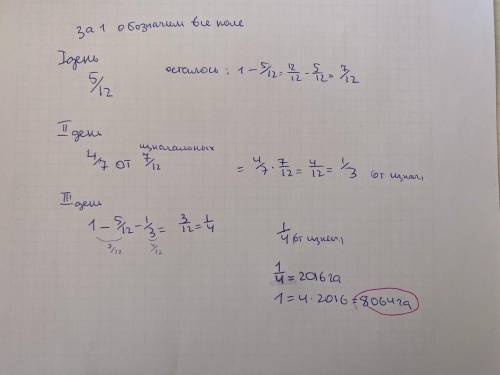 За 1 обозначим все поле
I день
5/12 осталось: 1 - 5/12 = 12/12 - 5/12 = 7/12
II день
4/7 от изначальных 7/12 = 4/7 · 7/12 = 4/12 = 1/3 (от изнач.)
III день
1 - 5/12 - 1/3 = 3/12 = 1/4
1/4 (от изнач.)
1/4 = 2016 га
1 = 4 · 2016 = 8064 га